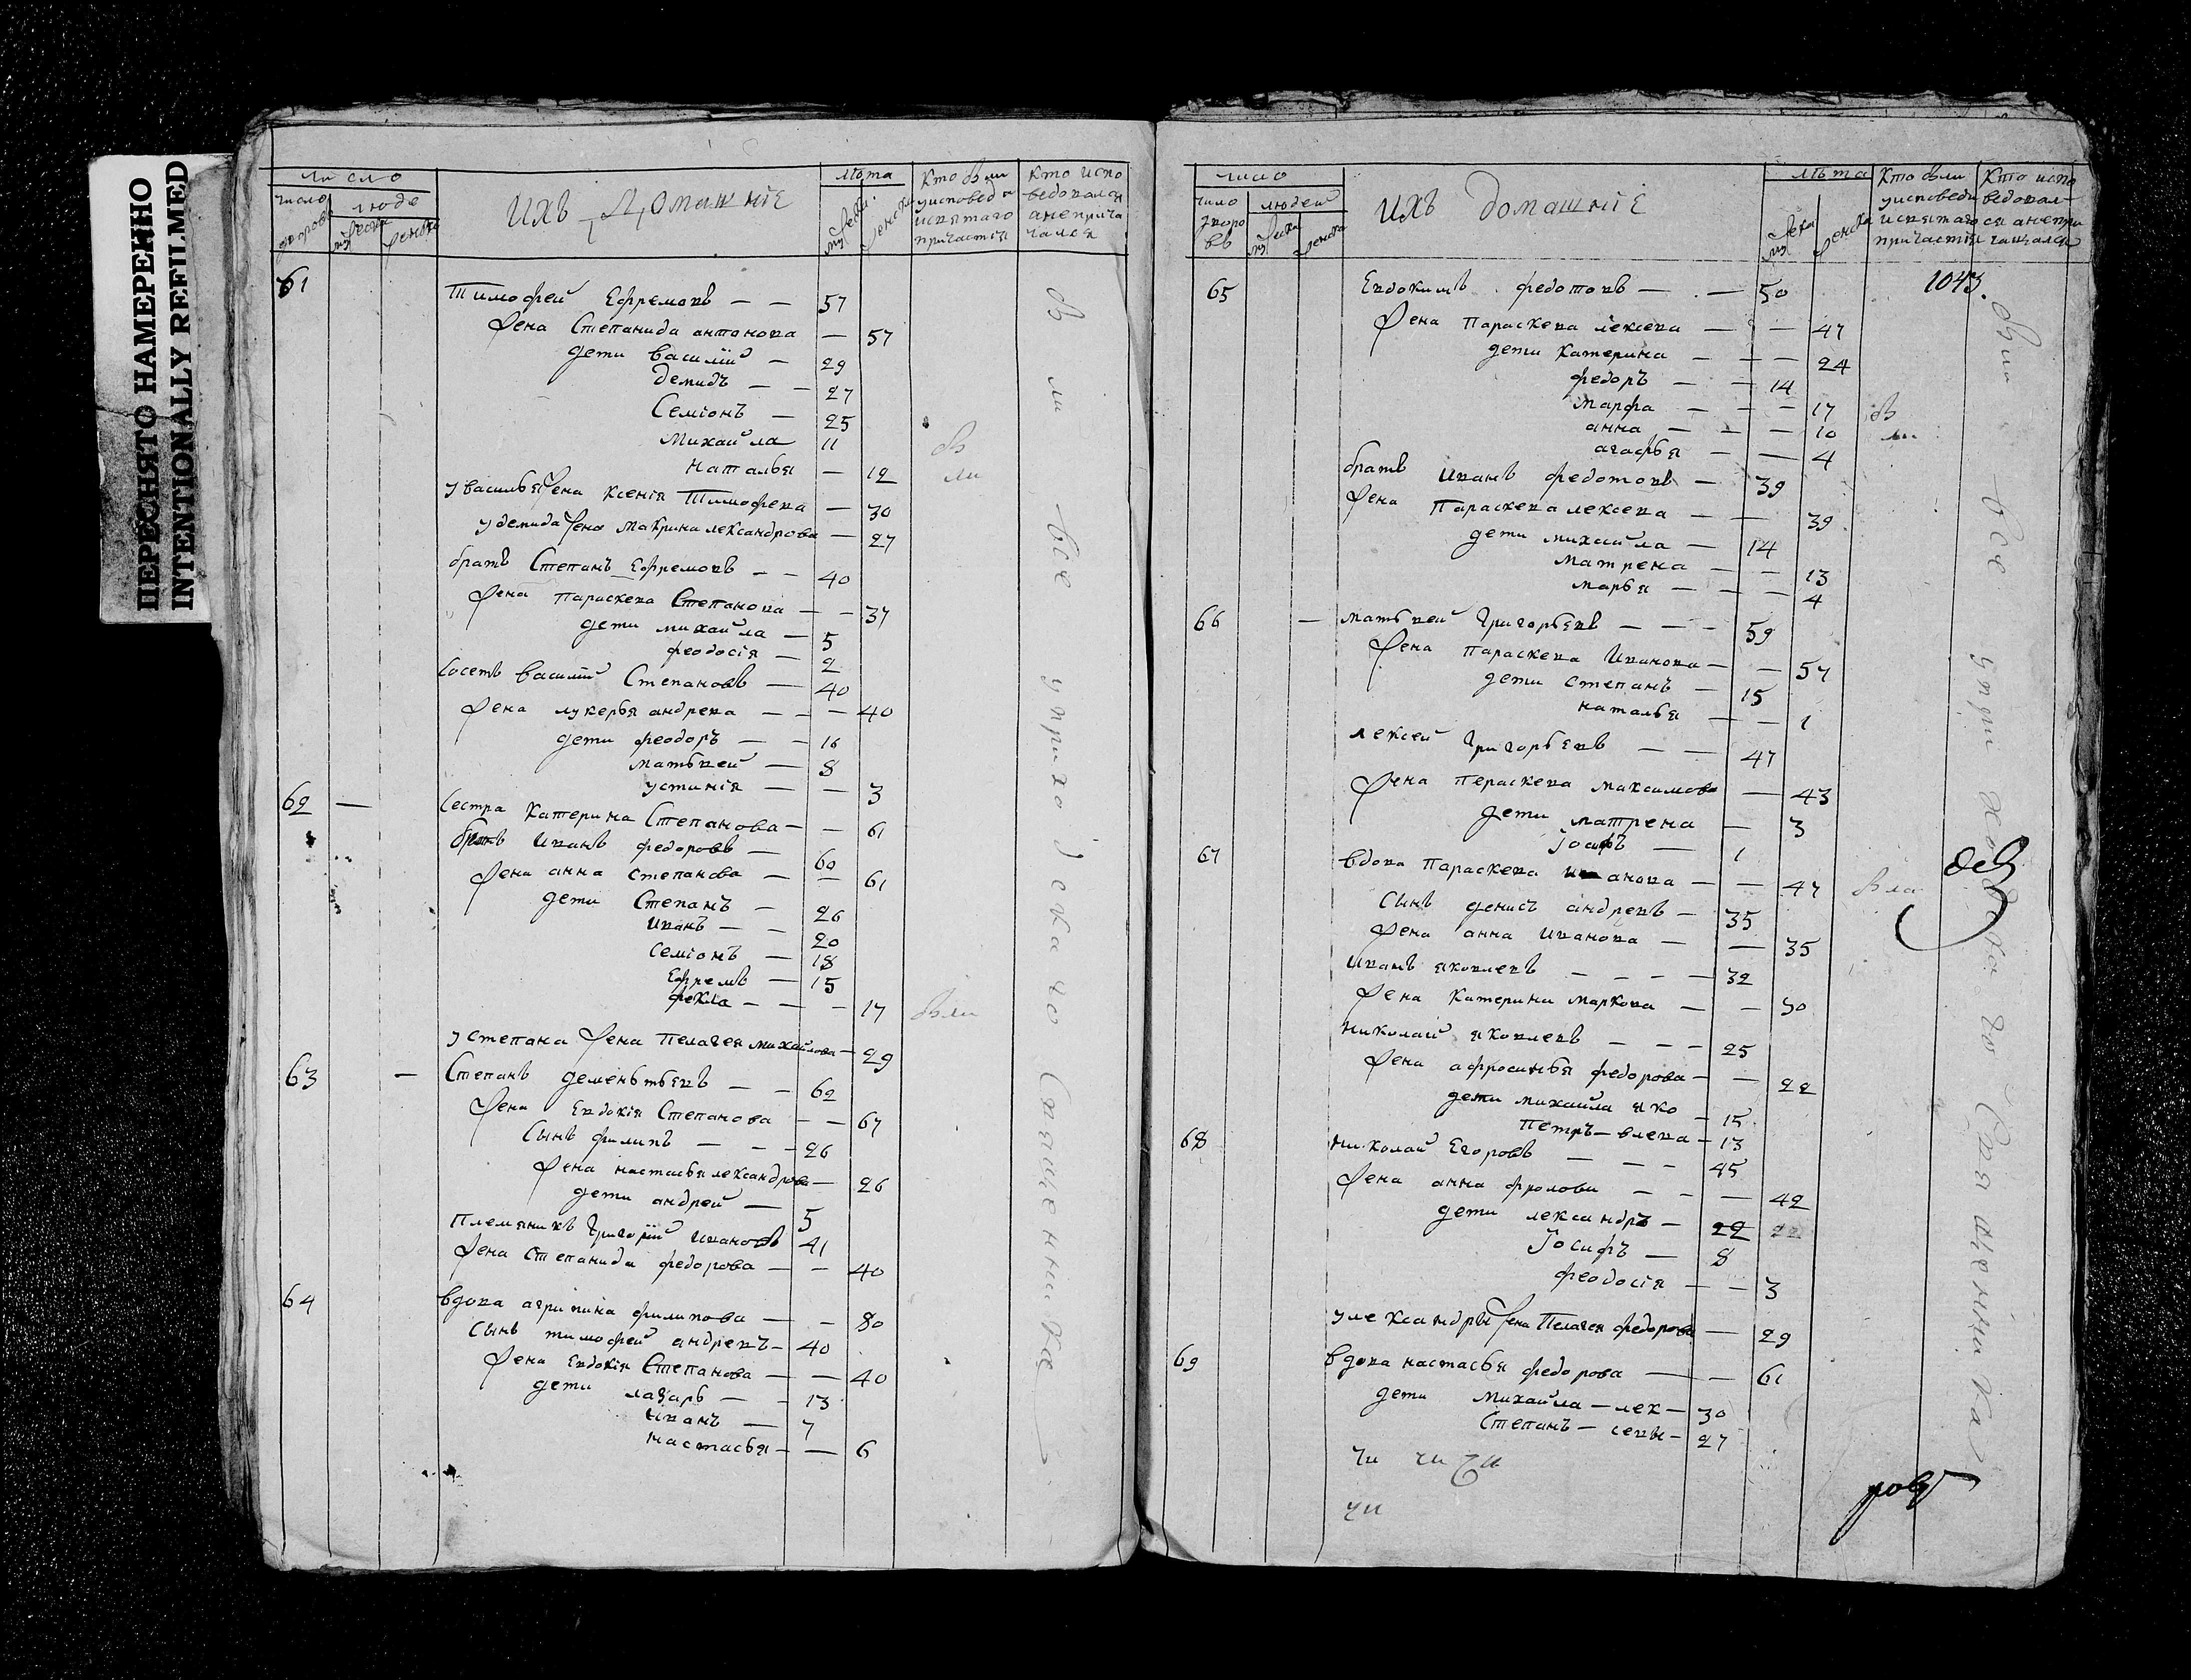 ПЕРЕСНЯТО НАМЕРЕННО
INTENTIONALLY REFILMED
число
число дворовъ
люде
мужеска
женска
ихъ Домашніе
лѣта
мужеска
женска
кто были
уисповеди
исвятаго
причастія
кто испо
ведовался
анеприча
чался
61
Тимофей Ефремовъ — — 57
жена Степанида антонова — 57
дети василій — 29
демидъ — — 27
Семіонъ — 25
михайла 11
наталья — 12
увасилья жена ксенія Тимофева — 30
удемида жена макрина лександрова — 27
братъ Степанъ Ефремовъ — — 40
жена параскева Степанова — — 37
дети михайла — 5
феодосія — 2
сосетъ василій Степановъ — 40
жена лукерья андрева — — — 40
дети феодоръ — — 16
матвей — 8
устинія — — 3
62 — сестра катерина Степанова — — 61
братъ иванъ федоровъ — 60
жена анна степанова — — 61
дети Степанъ — 26
иванъ — — 20
семіонъ — 18
Ефремъ — 15
фекла — — — 17
устепана жена пелагея михайлова — 29
63 — Степанъ деменьтьевъ — — 62
жена Евдокія Степанова — — 67
сынъ филипъ — — — 26
жена настасья лександрова — 26
дети андрей — 5
племяникъ григорій ивановъ 41
жена степанида федорова — — 40
64 вдова агрипина филипова — — 80
сынъ тимофей андревъ — 40
жена Евдокія Степанова — — 40
дети лазарь — — 13
иванъ — 7
настасья — — 6
были
были
были все у приходскаго Священника
число
число
дворо
въ
людей
мужеска
женска
ихъ домашніе
лѣта
мужеска
женска
кто были
уисповеди
исвятаго
причастія
кто испо
ведовал
ся анепри
чащался
1043.
65 Евдокимъ федотовъ — — 50
жена параскева лексева — — 47
дети катерина — — — 24
федоръ — — 14
марфа — — — 17
анна — — — 10
агафья — — 4
братъ иванъ федотовъ — 39
жена параскева лексева — — 39
дети михайла — 14
матрена — — 13
марья — — — 4
66 — матвей григорьевъ — — — 59
жена параскева иванова — — 57
дети степанъ — 15
наталья — — 1
лексей григорьевъ — — 47
жена пераскева максимова — 43
дети матрена — 3
Іосифъ — 1
67 вдова параскева иванова — — 47
сынъ денисъ андревъ — 35
жена анна иванова — — 35
иванъ яковлевъ — — — — 32
жена катерина маркова — — 30
николай яковлевъ — — — 25
жена афросинья федорова — — 22
дети михайла яко — 15
петръ — влева — 13
68 николай Егоровъ — — — 45
жена анна фролова — — — 42
дети лександръ — 22 22
Іосифъ — 8
феодосія — — 3
улександры жена пелагея федорова — 29
69 вдова настасья федорова — — 61
дети михайла — лек — 30
Степанъ — севы — 27
чи чи чи
чи
были
были
были все у приходскаго Священника